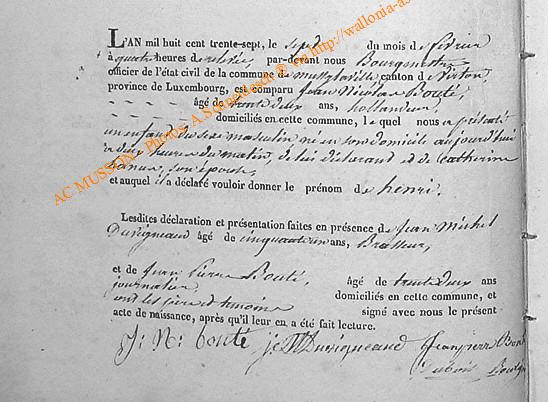 L'AN mil huit cent trente-sept, le sept du mois de février
à quatre heures de relevée, par-devant nous Bourgmestre
officier de l'état civil de la commune de canton de Virton,
province de Luxembourg, est comparu Jean Nicolas Bouté,
âgé de trente deux ans,
domiciliés en cette commune, lequel nous a présenté
un enfant du sexe masculin né en son domicile aujourd'hui
à deux heures du matin, de lui déclarant et de Catherine
son épouse,
et auquel il a déclaré vouloir donner le prénom de henri.
Lesdites déclaration et présentation faites en présence de Jean Michel
Duvigneaud âgé de cinquante un ans, Brasseur,
et de Jean Pierre Bouté, âgé de trente deux ans
journalier domiciliés en cette commune, et
ont les père et témoins signé avec nous le présent
acte de naissance, après qu'il leur en a été fait lecture.
J: N: bouté Duvigneaud Jeanpierre
AC MUSSON - Photos A.S @ via http://wallonia-as